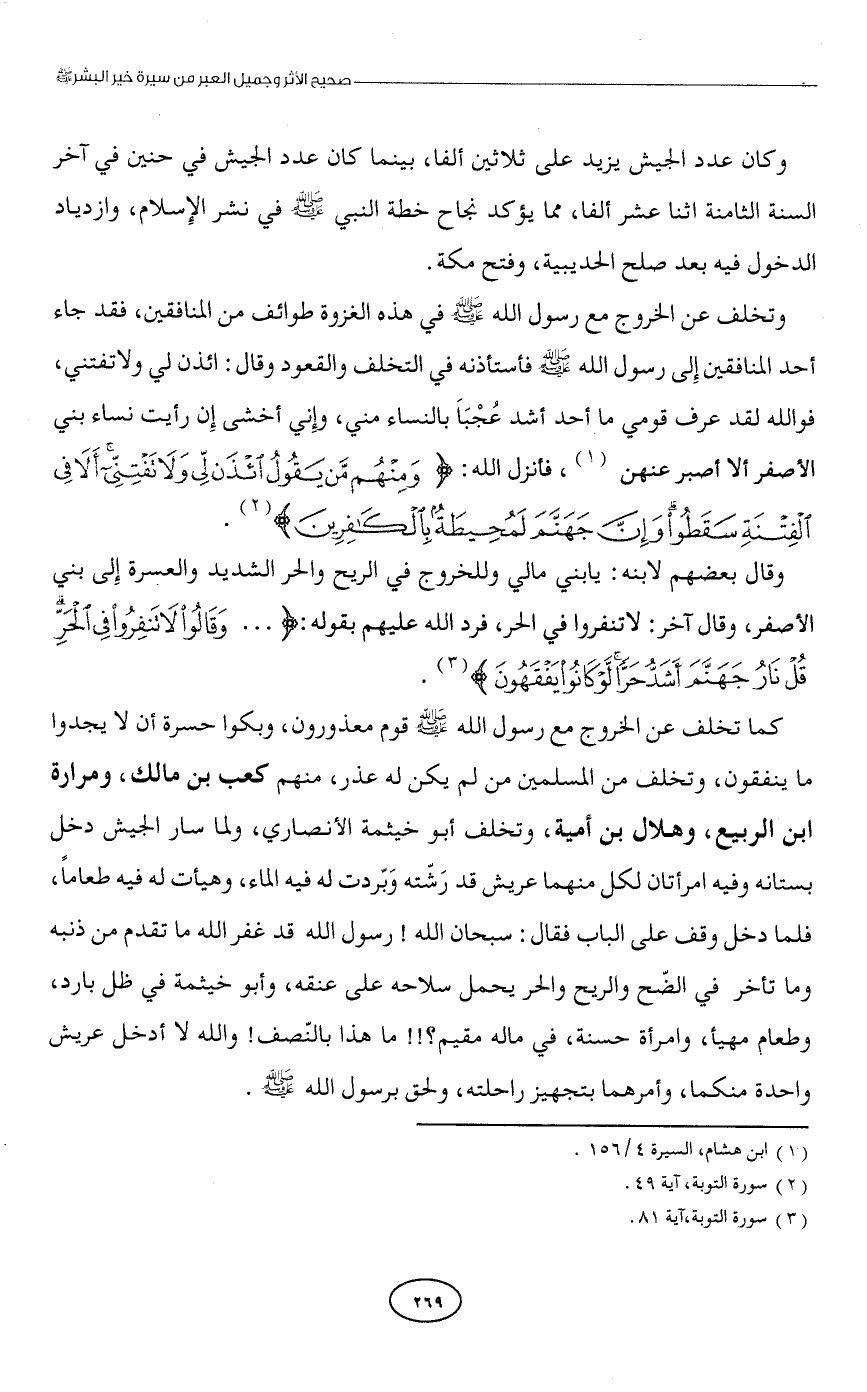 صحيح الأثر وجميل العبر من سيرة خير البشر ﷺ
وكان عدد الجيش يزيد على ثلاثين ألفا، بينما كان عدد الجيش في حنين في آخر
السنة الثامنة اثنا عشر ألفا، مما يؤكد نجاح خطة النبي ﷺ في نشر الإسلام، وازدياد
الدخول فيه بعد صلح الحديبية، وفتح مكة.
وتخلف عن الخروج مع رسول الله ﷺ في هذه الغزوة طوائف من المنافقين، فقد جاء
أحد المنافقين إلى رسول الله ﷺ فأستأذنه في التخلف والقعود وقال: ائذن لي ولاتفتني،
فوالله لقد عرف قومي ما أحد أشد عُجْبَاً بالنساء مني، وإني أخشى إن رأيت نساء بني
الأصفر ألا أصبر عنهن (١)، فأنزل الله: ﴿ وَمِنْهُم مَّن يَقُولُ ٱئْذَن لِّى وَلَا تَفْتِنِّىٓ ۚ أَلَا فِى
ٱلْفِتْنَةِ سَقَطُوا۟ ۗ وَإِنَّ جَهَنَّمَ لَمُحِيطَةٌۢ بِٱلْكَـٰفِرِينَ ﴾(٢).
وقال بعضهم لابنه: يابني مالي وللخروج في الريح والحر الشديد والعسرة إلى بني
الأصفر، وقال آخر: لاتنفروا في الحر، فرد الله عليهم بقوله:﴿ ... وَقَالُوا۟ لَا تَنفِرُوا۟ فِى ٱلْحَرِّ ۗ
قُلْ نَارُ جَهَنَّمَ أَشَدُّ حَرًّا ۚ لَّوْ كَانُوا۟ يَفْقَهُونَ ﴾(٣).
كما تخلف عن الخروج مع رسول الله ﷺ قوم معذورون، وبكوا حسرة أن لا يجدوا
ما ينفقون، وتخلف من المسلمين من لم يكن له عذر، منهم كعب بن مالك، ومرارة
ابن الربيع، وهلال بن أمية، وتخلف أبو خيثمة الأنصاري، ولما سار الجيش دخل
بستانه وفيه امرأتان لكل منهما عريش قد رَشّته وَبّردت له فيه الماء، وهيأت له فيه طعاماً،
فلما دخل وقف على الباب فقال: سبحان الله ! رسول الله قد غفر الله ما تقدم من ذنبه
وما تأخر في الضّح والريح والحر يحمل سلاحه على عنقه، وأبو خيثمة في ظل بارد،
وطعام مهيأ، وامرأة حسنة، في ماله مقيم؟!!! ما هذا بالنّصف! والله لا أدخل عريش
واحدة منكما، وأمرهما بتجهيز راحلته، ولحق برسول الله ﷺ .
(١) ابن هشام، السيرة ٤/ ١٥٦ .
(٢) سورة التوبة، آية ٤٩ .
(٣) سورة التوبة،آية ٨١.
٢٦٩